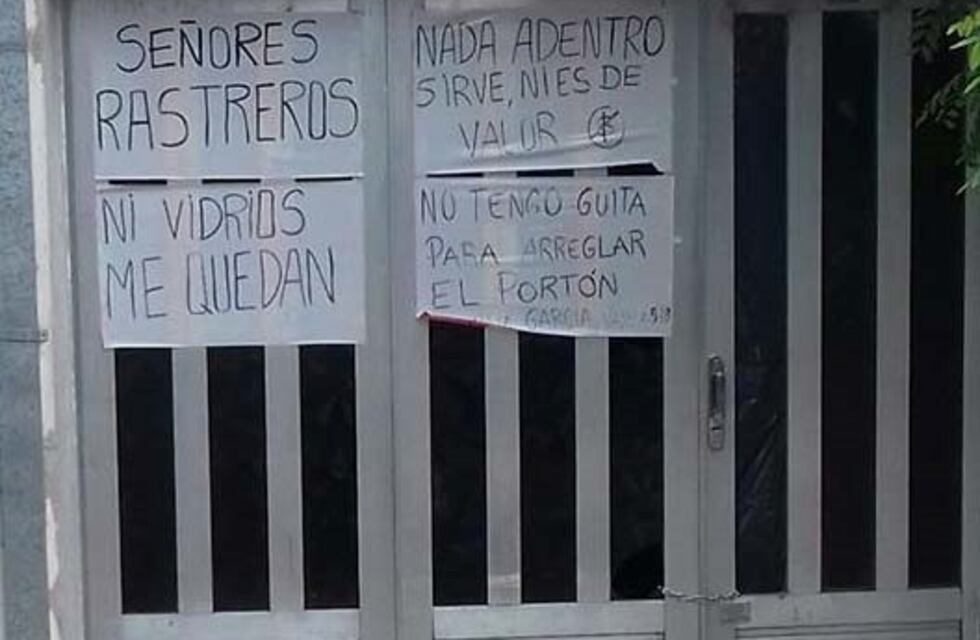 SEÑORES
RASTREROS
NI VIDRIOS
ME QUEDAN
NADA ADENTRO
SIRVE, NI ES DE
VALOR
NO TENGO GUITA
PARA ARREGLAR
EL PORTÓN
GARCIA